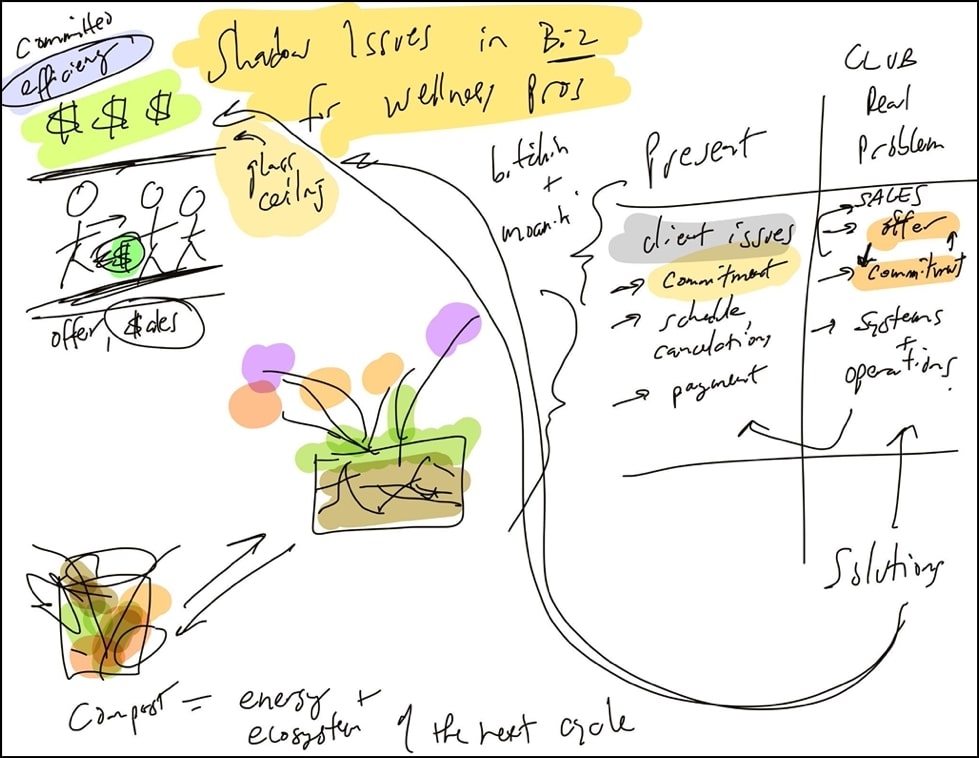 committed
efficiency
$ $ $
Shadow Issues in Biz
for wellness pros
glass
ceiling
$
offer, $ales
bitchin
+
moanin
Present
client issues
commitment
schedule,
cancelations
payment
CLUB
Real
Problem
SALES
offer
commitment
systems
+
operations
Solutions
Compost = energy +
ecosystem of the next cycle